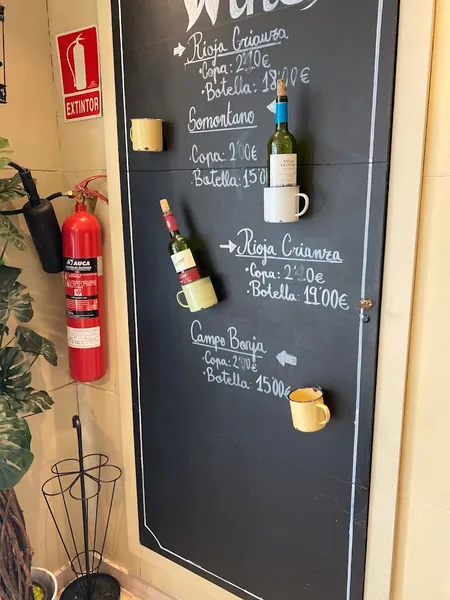 Wine
Rioja Crianza
·Copa: 2'10€
·Botella: 18'00€
Somontano
·Copa: 2'00€
·Botella: 15'0
Rioja Crianza
·Copa: 2'20€
·Botella: 19'00€
Campo Borja
·Copa: 2'00€
·Botella: 15'00€
EXTINTOR
AUCA